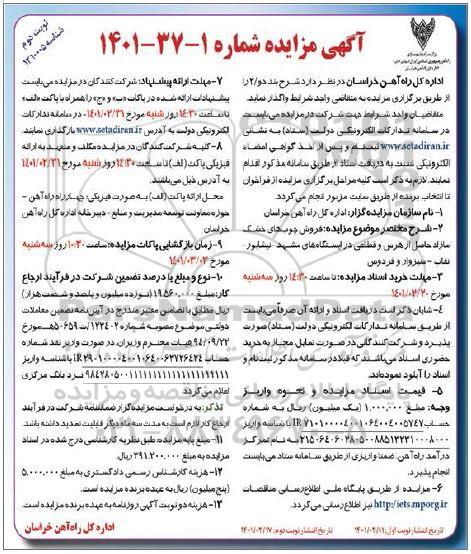 نوبت دوم
شناسه ۱۲۱۰۰۰۵
آگهی مزایده شماره ۱-۳۷-۱۴۰۱
اداره کل راه آهن خراسان در نظر دارد شرح بند دو/۲ را
از طریق برگزاری مزایده به متقاضی واجد شرایط واگذار نماید.
متقاضیان واجد شرایط جهت شرکت در مزایده می‌بایست
در سامانه تدارکات الکترونیکی دولت (ستاد) به نشانی
www.setadiran.ir ثبت‌نام و پس از اخذ گواهی امضاء
الکترونیکی نسبت به دریافت اسناد از طریق سامانه مذکور اقدام
نمایند. لازم به ذکر است کلیه مراحل برگزاری مزایده از فراخوان
تا انتخاب برنده از طریق سایت مزبور انجام می‌گردد.
۱- نام سازمان مزایده‌گزار: اداره کل راه آهن خراسان
۲- شرح مختصر موضوع مزایده: فروش چوب‌های خشک
مازاد حاصل از هرس و قطعی در ایستگاه‌های مشهد- نیشابور-
نقاب - سبزوار و فردوس
۳- مهلت خرید اسناد مزایده: تا ساعت ۱۴:۳۰ روز سه شنبه
مورخ ۱۴۰۱/۰۲/۲۰
۴- شایان ذکر است دریافت اسناد و ارائه آن صرفاً می‌بایست
از طریق سامانه تدارکات الکترونیکی دولت (ستاد) صورت
پذیرد و شرکت کنندگانی در صورت تمایل مجاز به خرید
حضوری اسناد می‌باشند که قبلا در سامانه مذکور ثبت نام و
اسناد را آپلود نموده‌اند.
۵- قیمت اسناد مزایده و نحوه واریز
وجه: مبلغ ۱,۰۰۰,۰۰۰ (یک میلیون) ریال به شماره
حساب
با شناسه واریز
به نام تمرکز
درآمد راه آهن، ضمنا واریزی از طریق سامانه ستاد می‌بایست
انجام پذیرد.
۶- مزایده از طریق پایگاه ملی اطلاع‌رسانی مناقصات
http://iets.mporg.ir نیز اطلاع رسانی می‌گردد.
۷- مهلت ارائه پیشنهاد: شرکت کنندگان در مزایده می‌بایست
پیشنهادات ارائه شده در پاکات «ب» و «ج» را همراه با پاکت «الف»
تا ساعت ۱۴:۳۰ روز شنبه مورخ ۱۴۰۱/۰۲/۳۱ در سامانه تدارکات
الکترونیکی دولت به آدرس www.setadiran.ir بارگذاری نمایند.
۸- کلیه شرکت‌کنندگان در مزایده مکلف و متعهد به ارائه
فیزیکی پاکت (الف) تا ساعت ۱۴:۳۰ روز شنبه مورخ ۱۴۰۱/۰۲/۳۱
به آدرس ذیل می‌باشند.
محل ارائه پاکت (الف) به صورت فیزیکی: چهارراه راه آهن -
حوزه معاونت توسعه مدیریت و منابع - دبیرخانه اداره کل راه آهن
خراسان
۹- زمان بازگشایی پاکات مزایده: ساعت ۱۰:۳۰ روز سه شنبه
مورخ ۱۴۰۱/۰۳/۰۳
۱۰- نوع و مبلغ یا درصد تضمین شرکت در فرآیند ارجاع
کار: مبلغ ۱۹,۵۶۰,۰۰۰ (نوزده میلیون و پانصد و شصت هزار)
ریال مطابق با تضامین معتبر مندرج در آیین نامه تضمین معاملات
دولتی موضوع مصوبه شماره ۱۲۳۴۰۲/ت۵۰۶۵۹هـ مورخ
۹۴/۰۹/۲۲ هیات محترم وزیران، در صورت واریز نقد شماره
حساب
با شناسه واریز
نزد بانک مرکزی
اعلام می‌گردد.
تذکر: به درخواست مزایده‌گزار ضمانتنامه شرکت در فرآیند
ارجاع کار لازم است به مدت سه ماه دیگر قابلیت تمدید داشته باشد.
۱۱- مبلغ پایه مزایده: طبق نظریه کارشناسی درج شده در اسناد
مزایده به مبلغ ۳۹۱,۲۰۰,۰۰۰ ریال
۱۲- هزینه کارشناس رسمی دادگستری به مبلغ ۵,۰۰۰,۰۰۰
(پنج میلیون) ریال به عهده برنده مزایده است.
۱۳- هزینه دو نوبت آگهی روزنامه به عهده برنده مزایده است.
تاریخ انتشار نوبت اول: ۱۴۰۱/۰۲/۱۱ تاریخ انتشار نوبت دوم: ۱۴۰۱/۰۲/۱۷
اداره کل راه‌آهن خراسان